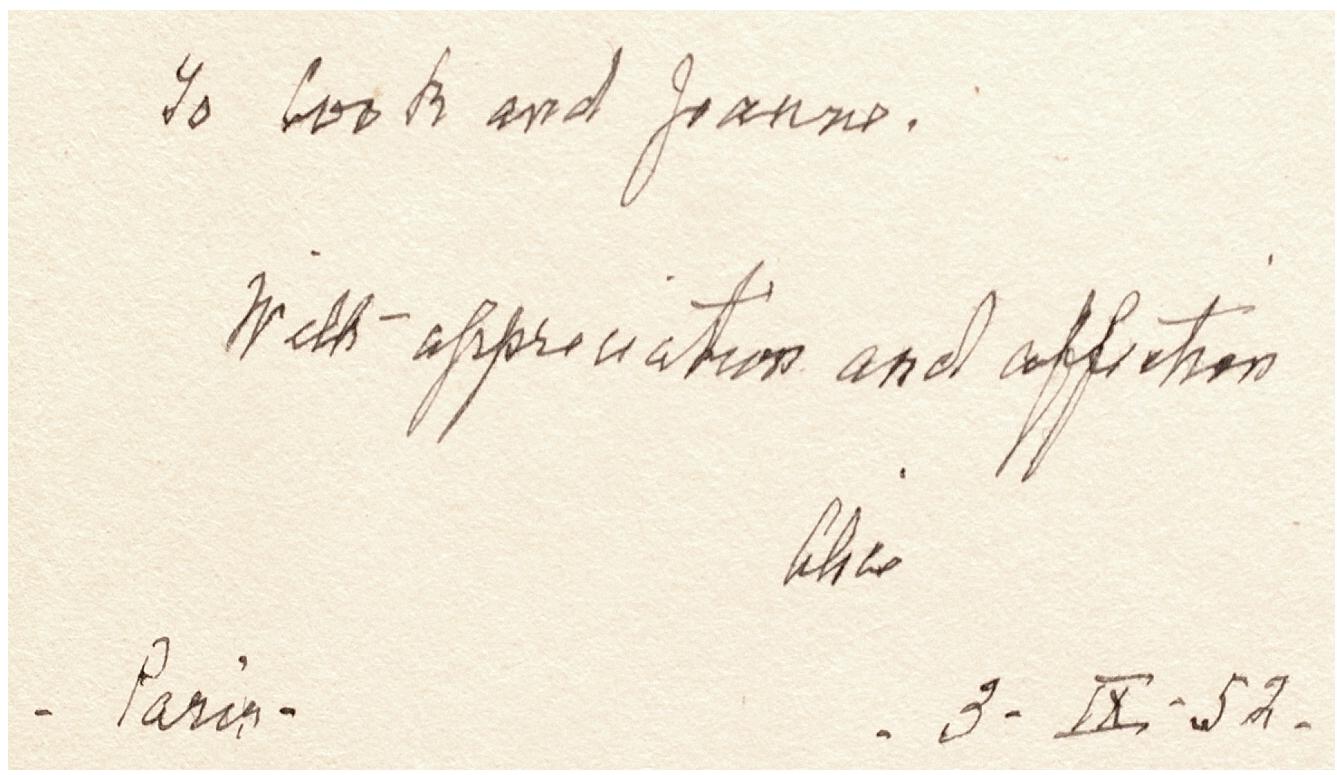 To Cook and Jeanne.
With appreciation and affection
Alice
- Paris -
. 3 - IX - 52 .